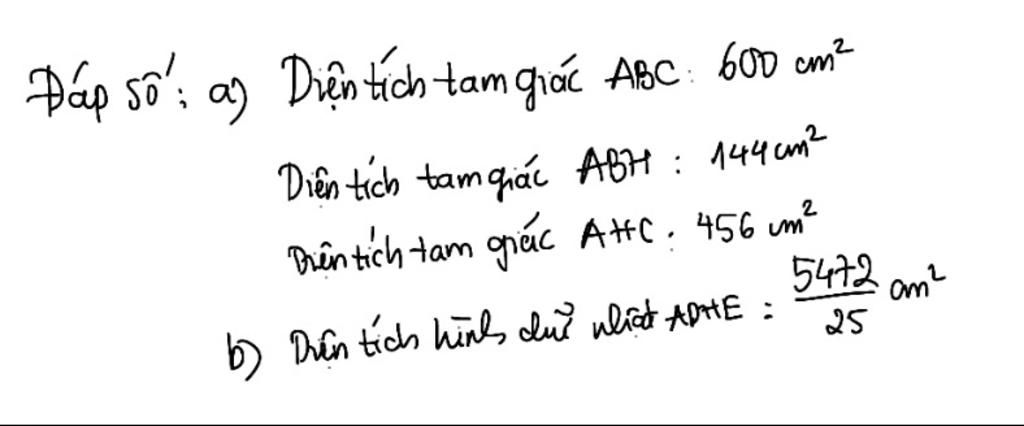 Đáp số: a) Diện tích tam giác ABC: 600 cm²
Diện tích tam giác ABH: 144 cm²
Diện tích tam giác AHC: 456 cm²
b) Diện tích hình chữ nhật ADHE: 5472/25 cm²